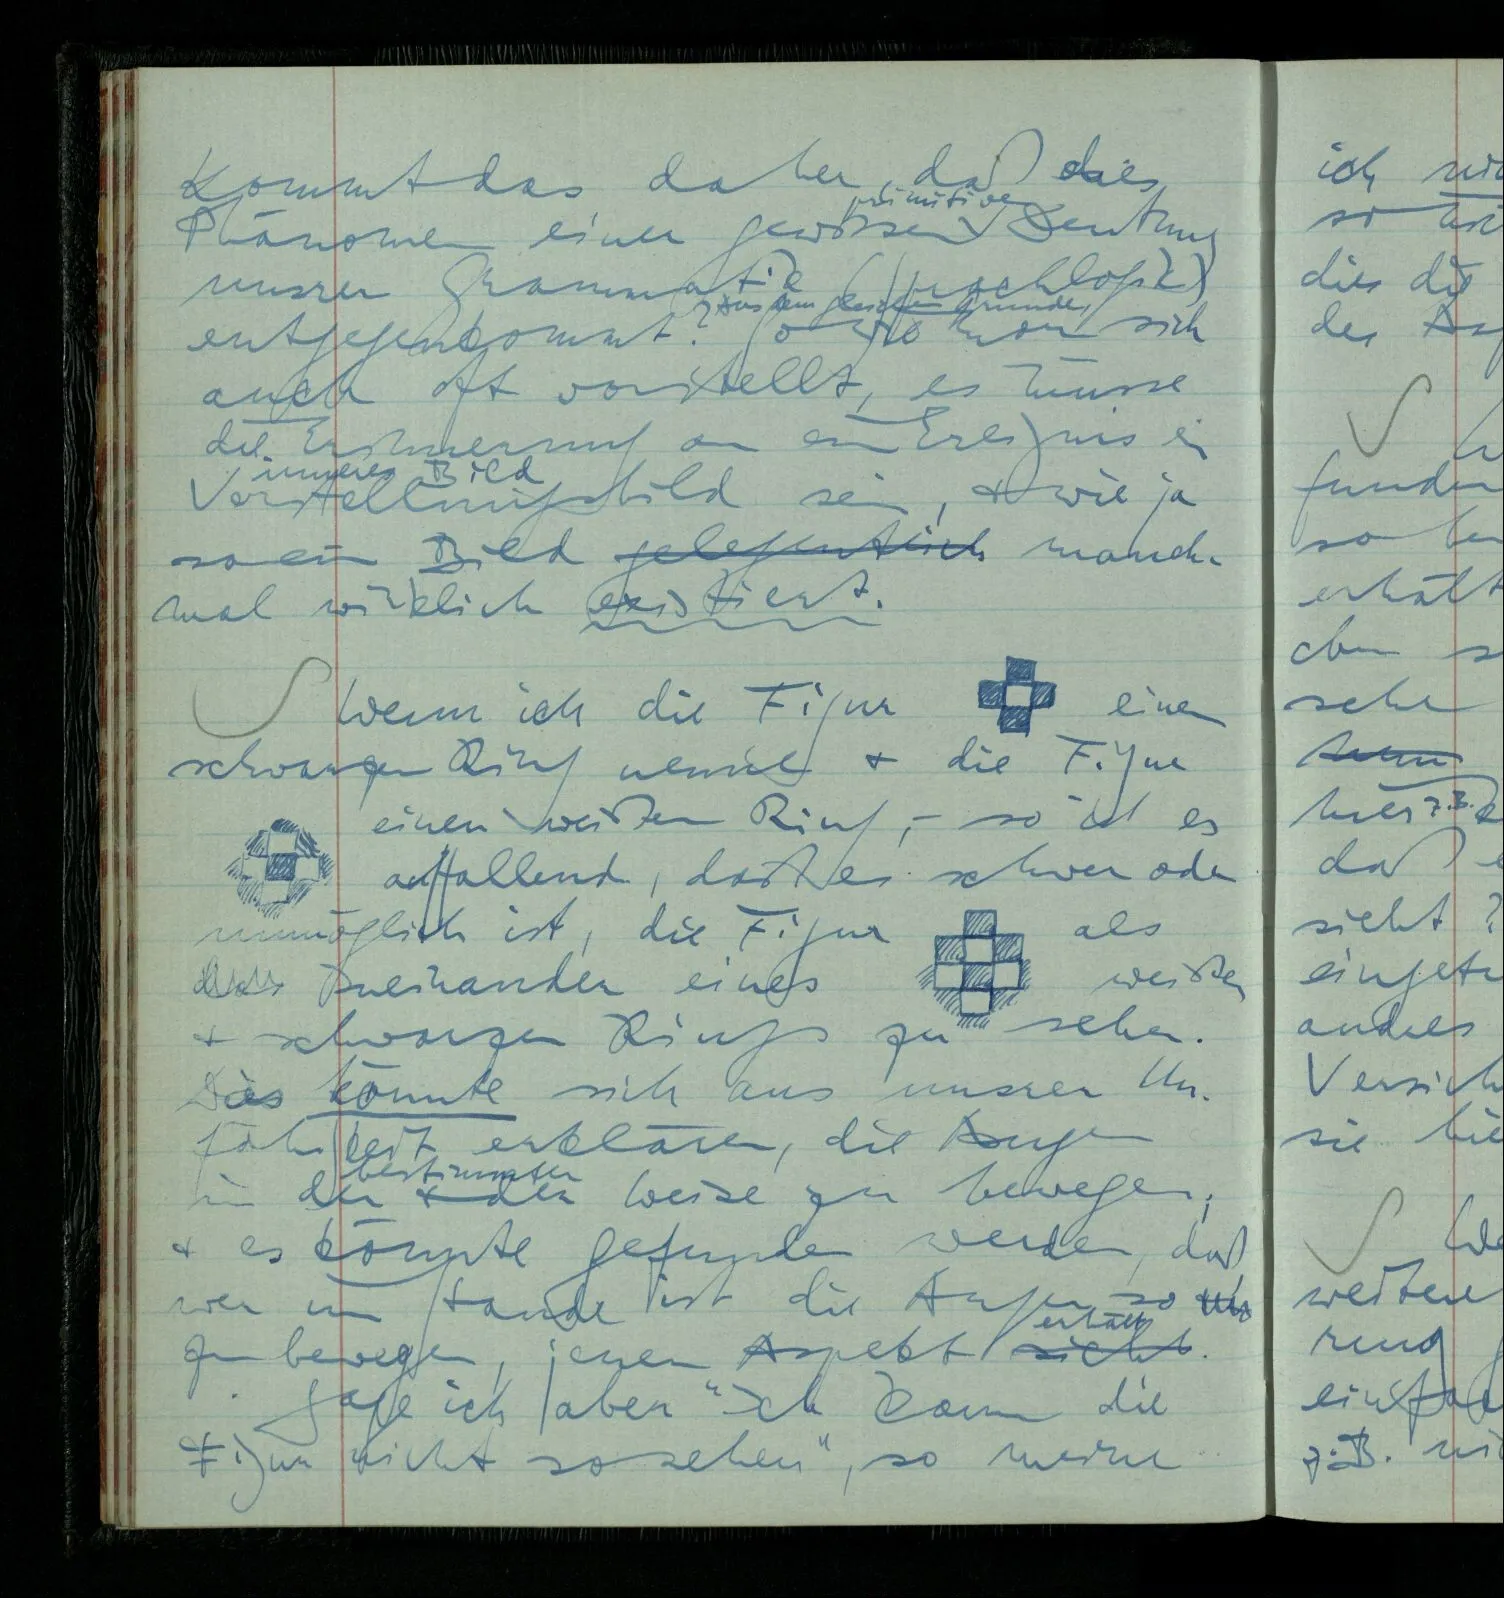 Kommt das daher, daß dies
primitiven
Phänomen einer gewissen Deutung
unsrer Grammatik (Sprachlogik)
? Aus dem gleichen Grunde,
entgegenkommt? So wie man sich
auch oft vorstellt, es müsse
die Erinnerung an ein Ereignis ein
inneres Bild
Vorstellungsbild sein, & wie ja
so ein Bild gelegentlich manch-
mal wirklich existiert.
Wenn ich die Figur einen
schwarzen Ring nenne & die Figur
einen weißen Ring, – so ist es
auffallend, daß es schwer oder
unmöglich ist, die Figur als
das Ineinander eines weißen
& schwarzen Rings zu sehen.
Dies könnte sich aus unsrer Un-
fähigkeit erklären, die Augen
bestimmter
in der & der Weise zu bewegen;
& es könnte gefunden werden, daß
wer im Stande ist die Augen so
erhält
zu bewegen, jenen Aspekt sieht.
Sage ich aber “Ich kann die
Figur nicht so sehen”, so meine
ich
so
dies die
des
erhält
eben
sehe
hier z.B.
daß
sieht?
andres
sie
z.B.